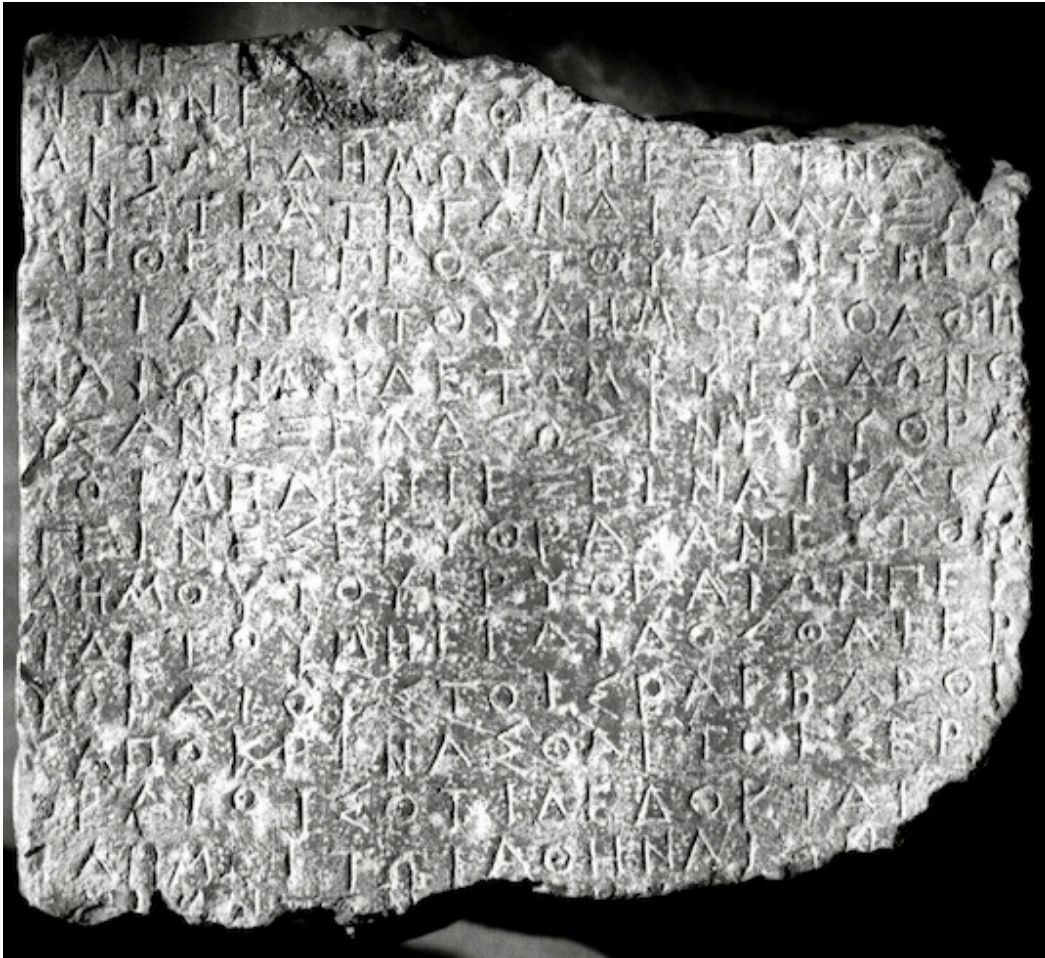 ΝΤΩΝΕ ΥΘΡΑ
ΑΙΤΩΙΔΗΜΩΙΜΗΕΞΕΙΝΑ
ΩΝΣΤΡΑΤΗΓΩΝΔΙΑΛΛΑΞΑΙ
ΜΗΘΕΝΙΠΡΟΣΤΟΥΣΕΝΤΗΙΠΟ
ΛΕΙΑΝΕΥΤΟΥΔΗΜΟΥΤΟΑΘΗ
ΝΑΙΩΝΜΗΔΕΤΩΜΦΥΓΑΔΩΝΟ
ΥΣΑΝΕΞΕΛΑΣΩΣΙΝΕΡΥΘΡΑ
ΙΟΙΜΗΔΕΝΙΕΞΕΙΝΑΙΚΑΤΑ
ΓΕΙΝΕΣΕΡΥΘΡΑΣΑΝΕΥΤΟΥ
ΔΗΜΟΥΤΟΥΕΡΥΘΡΑΙΩΝΠΕΡ
ΙΔΕΤΟΥΜΗΕΓΔΙΔΟΣΘΑΙΕΡ
ΥΘΡΑΙΟΣΤΟΙΣΒΑΡΒΑΡΟΙ
ΣΑΠΟΚΡΙΝΑΣΘΑΙΤΟΙΣΕΡ
ΥΘΡΑΙΟΙΣΟΤΙΔΕΔΟΚΤΑΙ
ΙΔΗΜΩΙΤΩΙΑΘΗΝΑΙ